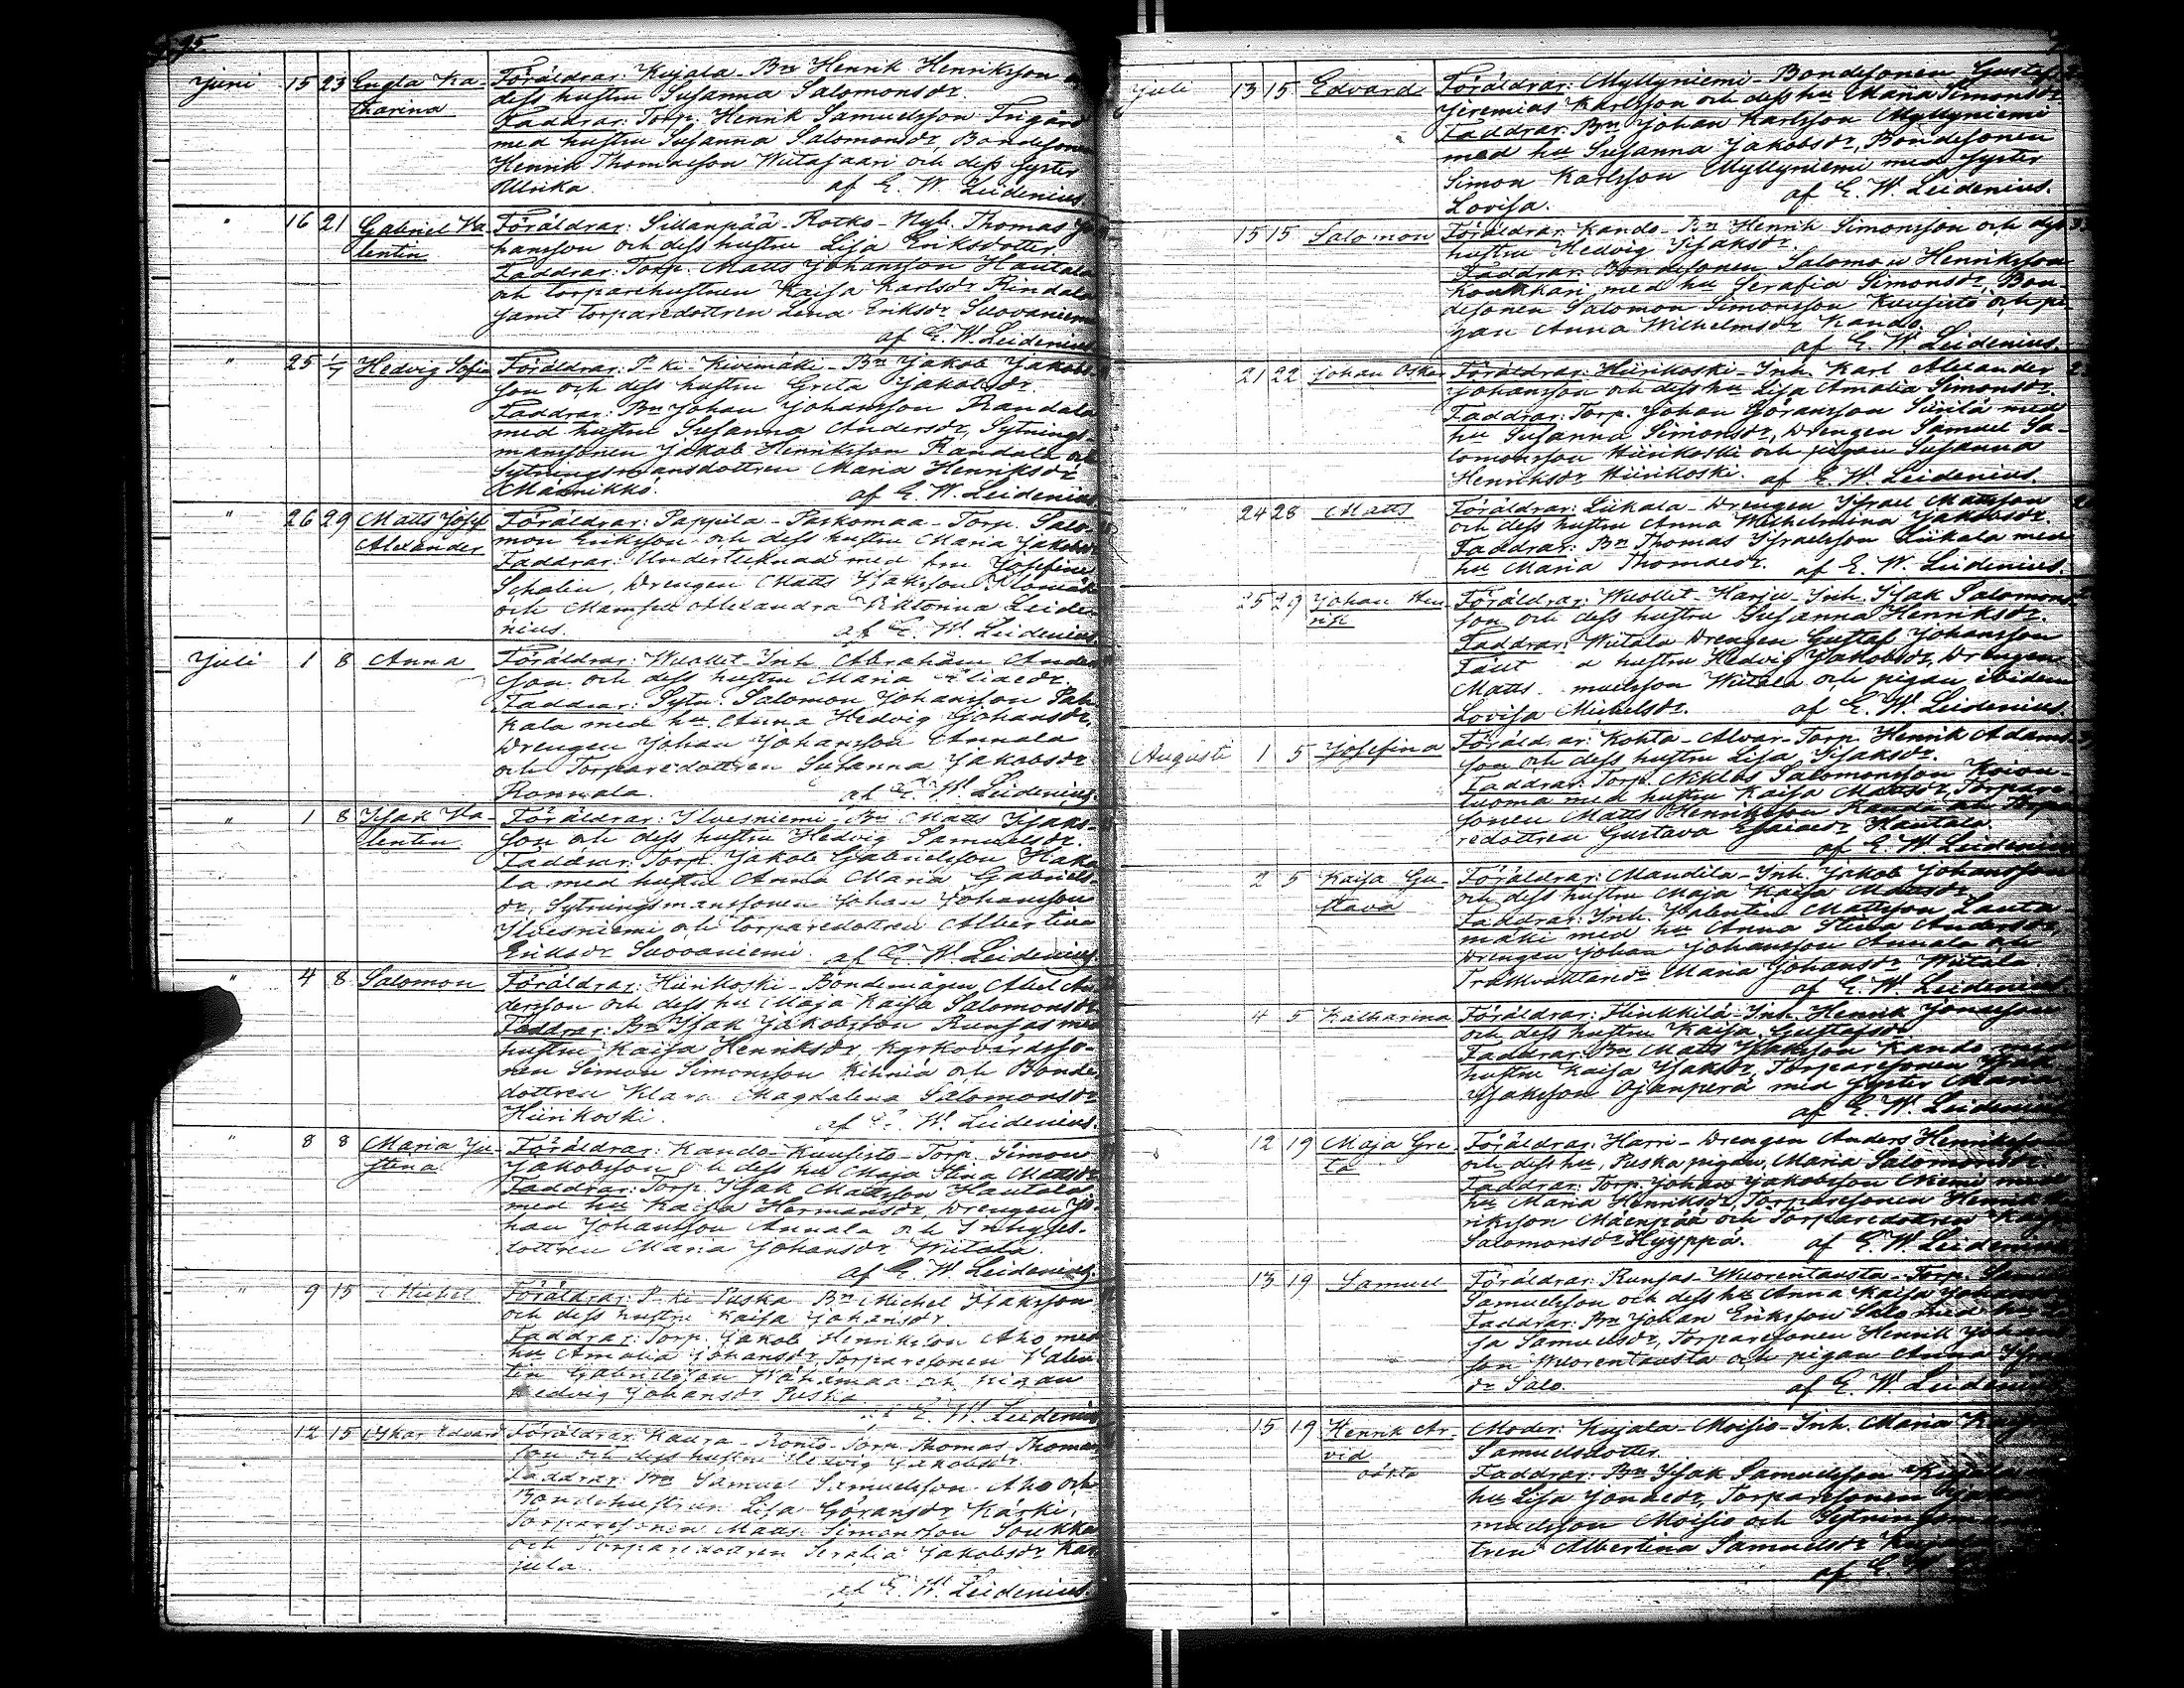 Juni 15 23 Engla Ka- Föräldrar: Kujala - Bn Henrik Henriksson
tharina dess hustru Susanna Salomonsdr.
Faddrar: Torp. Henrik Samuelsson Frigård
med hustru Susanna Salomonsdr, Bondesonen
Henrik Thomasson Wiitasaari och dess syster
Ulrika. af E. W. Leidenius.
" 16 21 Gabriel Va- Föräldrar: Sillanpää - Rotko - Nyb. Thomas Jo-
lentin hansson och dess hustru Lisa Eriksdotter
Faddrar: Torp. Matts Johansson Hautala
och torparehustrun Kaisa Karlsdr Rindala
samt torparedottren Lena Eriksdr Suovaniemi
af E. W. Leidenius
" 25 1/7 Hedvig Sofia Föräldrar: P-ki - Kivimäki - Bn Jakob Jakobs-
son och dess hustru Greta Jakobsdr.
Faddrar: Bn Johan Johansson Randala
med hustru Susanna Andersdr, Sytnings-
mansonen Jakob Henriksson Randala och
Sytningsmansdottren Maria Henriksdr
Männikkö. af E. W. Leidenius
" 26 29 Matts Josef Föräldrar: Pappila - Paskomaa - Torp. Salo-
Alexander mon Eriksson och dess hustru Maria Jakobsdr
Faddrar: Undertecknad med fru Josefine
Schalin, Drengen Matts Isaksson
och Mamsell Alexandra Viktorina Leide-
nius. af E. W. Leidenius
Juli 1 8 Anna Föräldrar: Wuollet - Inh. Abraham Anders-
son och dess hustru Maria Eliaedr.
Faddrar: Sytn. Salomon Johansson Pah-
kala med hu Anna Hedvig Johansdr,
Drengen Johan Johansson Annala
och Torparedottren Susanna Jakobsdr
Ronnala. af E. W. Leidenius.
" 1 8 Isak Va- Föräldrar: Ilvesniemi - Bn Matts Isaks-
lentin son och dess hustru Hedvig Samuelsdr.
Faddrar: Torp. Jakob Gabrielsson Haka-
la med hustru Anna Maria Gabriels-
dr, Sytningsmanssonen Johan Johansson
Ilvesniemi och torparedottren Albertina
Eriksdr Suovaniemi. af E. W. Leidenius.
" 4 8 Salomon Föräldrar: Hiirikoski - Bondemågen Abel An-
dersson och dess hu Maja Kaisa Salomonsdr
Faddrar: Bn Isak Jakobsson Runsas med
hustru Kaisa Henriksdr, Kyrkovärdsso-
nen Simon Simonsson Kihniä och Bonde-
dottren Klara Magdalena Salomonsdr
Hiirikoski. af E. W. Leidenius.
" 8 8 Maria Ju- Föräldrar: Kando - Kuusisto - Torp. Simon
stina Jakobsson och dess hu Maja Stina Mattsdr
Faddrar: Torp. Isak Mattsson Hautala
med hu Kaisa Hermansdr, Drengen Jo-
han Johansson Annala och Inhyses-
dottren Maria Johansdr Wiitala.
af E. W. Leidenius.
" 9 15 Michel Föräldrar: P-ki Puska Bn Michel Isaksson
och dess hustru Kaisa Johansdr
Faddrar: Torp. Jakob Henriksson Aho med
hu Amalia Johansdr, Torparesonen Valen-
tin Gabrielsson och pigan
Hedvig Johansdr Puska
af E. W. Leidenius
12 15 Oskar Edvard Föräldrar: Kaura - Ronto - Torp. Thomas Thomas-
son och dess hustru Hedvig Jakobsdr.
Faddrar: Bn Samuel Samuelsson Aho och
Bondehustrun Lisa Göransdr Kärki,
Torparesonen Matts Simonsson Soukka
och Torparedottren Serafia Jakobsdr Kar-
jula.
af E. W. Leidenius.
Juli 13 15 Edvard Föräldrar: Myllyniemi - Bondesonen Gustaf
Jeremias Karlsson och dess hu Maria Simonsdr
Faddrar: Bn Johan Karlsson Myllyniemi
med hu Susanna Jakobsdr, Bondesonen
Simon Karlsson Myllyniemi med syster
Lovisa. af E. W. Leidenius.
15 15 Salomon Föräldrar: Kando - Bn Henrik Simonsson och dess
hustru Hedvig Isaksdr.
Faddrar: Bondesonen Salomon Henriksson
Koukkari med hu Serafia Simonsdr, Bon-
desonen Salomon Simonsson Kuusisto och pi-
gan Anna Wilhelmsdr Kando.
af E. W. Leidenius.
21 22 Johan Oskar Föräldrar: Hiirikoski - Inh. Karl Alexander
Johansson och dess hu Lisa Amalia Simonsdr.
Faddrar: Torp. Johan Göransson Siirilä med
hu Susanna Simonsdr, Drengen Samuel Sa-
lomonsson Hiirikoski och pigan Susanna
Henriksdr Hiirikoski. af E. W. Leidenius.
24 28 Matts Föräldrar: Liikala - Drengen Israel Mattsson
och dess hustru Anna Wilhelmina Jakobsdr.
Faddrar: Bn Thomas Israelsson Liikala med
hu Maria Thomaedr. af E. W. Leidenius.
25 29 Johan Hen- Föräldrar: Wuollet - Harju - Inh. Isak Salomons-
rik son och dess hustru Susanna Henriksdr.
Faddrar: Wiitala Drengen Gustaf Johansson
Fält hustru Hedvig Jakobsdr, Drengen
Matts muelsson Wiitala och pigan ibidem
Lovisa Michelsdr. af E. W. Leidenius.
Augusti 1 5 Josefina Föräldrar: Kohta - Alvar - Torp. Henrik Adams-
son och dess hustru Lisa Isaksdr.
Faddrar: Torp. Niklas Salomonsson Koivu-
luoma med hustru Kaisa Mattsdr, Torpare-
sonen Matts Henriksson Kando och Torpa-
redottren Gustava Esaiaedr Hautala.
af E. W. Leidenius
2 5 Kaisa Gu- Föräldrar: Mandila - Inh. Jakob Johansson
stava och dess hustru Maja Kaisa Mattsdr
Faddrar: Inh. Valentin Mattsson Lauta-
mäki med hu Anna Stina Andersdr,
Drengen Johan Johansson Annala och
Maria Johansdr Wiitala.
af E. W. Leidenius.
4 5 Katharina Föräldrar: Hinkkilä - Inh. Henrik Jonasson
och dess hustru Kaisa Gustafsdr
Faddrar: Bn Matts Isaksson Kando med
hustru Kaisa Isaksdr, Torparesonen
Isaksson Ojanperä med syster Maria
af E. W. Leidenius
12 19 Maja Gre- Föräldrar: Harri - Drengen Anders Henriksson
ta och dess hu, Puska pigan, Maria Salomonsdr
Faddrar: Torp. Johan Jakobsson Niemi med
hu Maria Henriksdr, Torparesonen Henrik Hen-
riksson Mäenpää och Torparedottren Kaisa
Salomonsdr Hyyppä. af E. W. Leidenius
13 19 Samuel Föräldrar: Runsas - Wuorentausta - Torp.
Samuelsson och dess hu Anna Kaisa Johansdr
Faddrar: Bn Johan Eriksson Salo med hu
sa Samuelsdr, Torparesonen Henrik Johans-
son Wuorentausta och pigan Anna
dr Salo. af E. W. Leidenius
15 19 Henrik Ar- Moder: Kujala - Moisio - Inh. Maria
vid Samuelsdotter.
oäkta Faddrar: Bn Isak Samuelsson Kujala
hu Lisa Jonaedr, Torparesonen
muelsson Moisio och Sytningsman
tren Albertina Samuelsdr
af E. W.